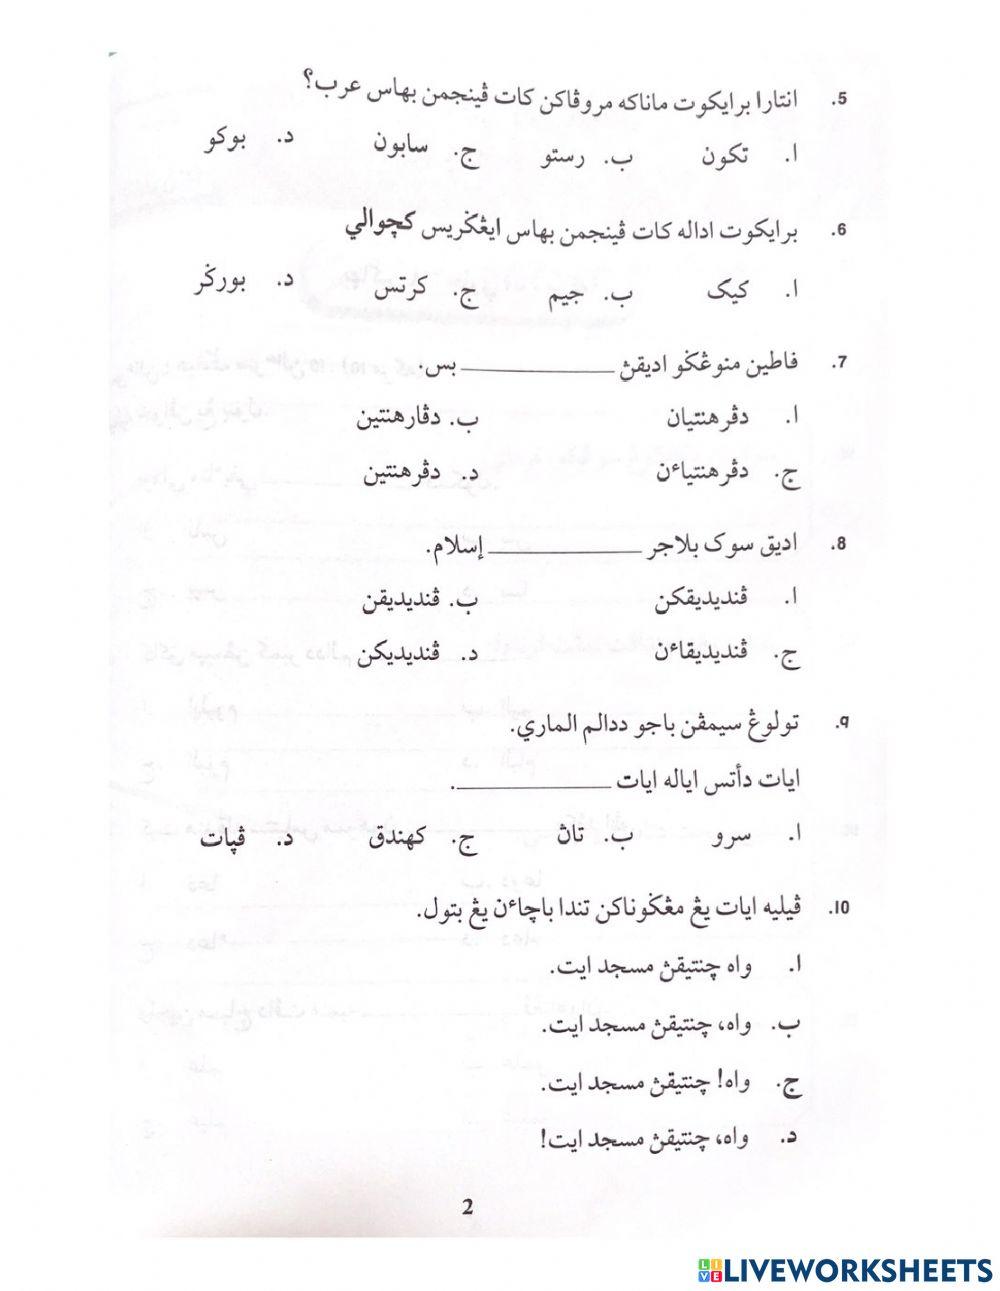 5. انتارا برايكوت ماناكه مروڤاكن كات ڤينجمن بهاس عرب؟
ا. تكون ب. رستو ج. سابون د. بوكو
6. برايكوت اداله كات ڤينجمن بهاس ايڠݢريس كچوالي
ا. کيک ب. جيم ج. كرتس د. بورݢر
7. فاطين منوڠݢو اديقڽ ____________ بس.
ا. دڤرهنتيان ب. دڤارهنتين
ج. دڤرهنتياءن د. دڤرهنتين
8. اديق سوک بلاجر ____________ إسلام.
ا. ڤنديديقكن ب. ڤنديديقن
ج. ڤنديديقاءن د. ڤنديديكن
9. تولوڠ سيمڤن باجو ددالم الماري.
ايات دأتس اياله ايات ____________.
ا. سرو ب. تاڽ ج. كهندق د. ڤڽات
10. ڤيليه ايات يڠ مڠݢوناكن تندا باچاءن يڠ بتول.
ا. واه چنتيقڽ مسجد ايت.
ب. واه، چنتيقڽ مسجد ايت.
ج. واه! چنتيقڽ مسجد ايت.
د. واه، چنتيقڽ مسجد ايت!
2
LIVEWORKSHEETS